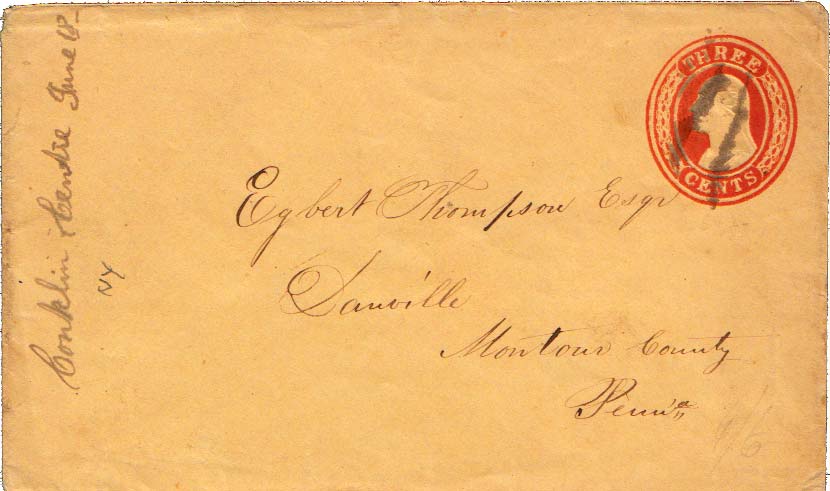 THREE
CENTS
Egbert Thompson Esqr
Danville
Montour County
Penn'a
Conklin Centre June 18
NY